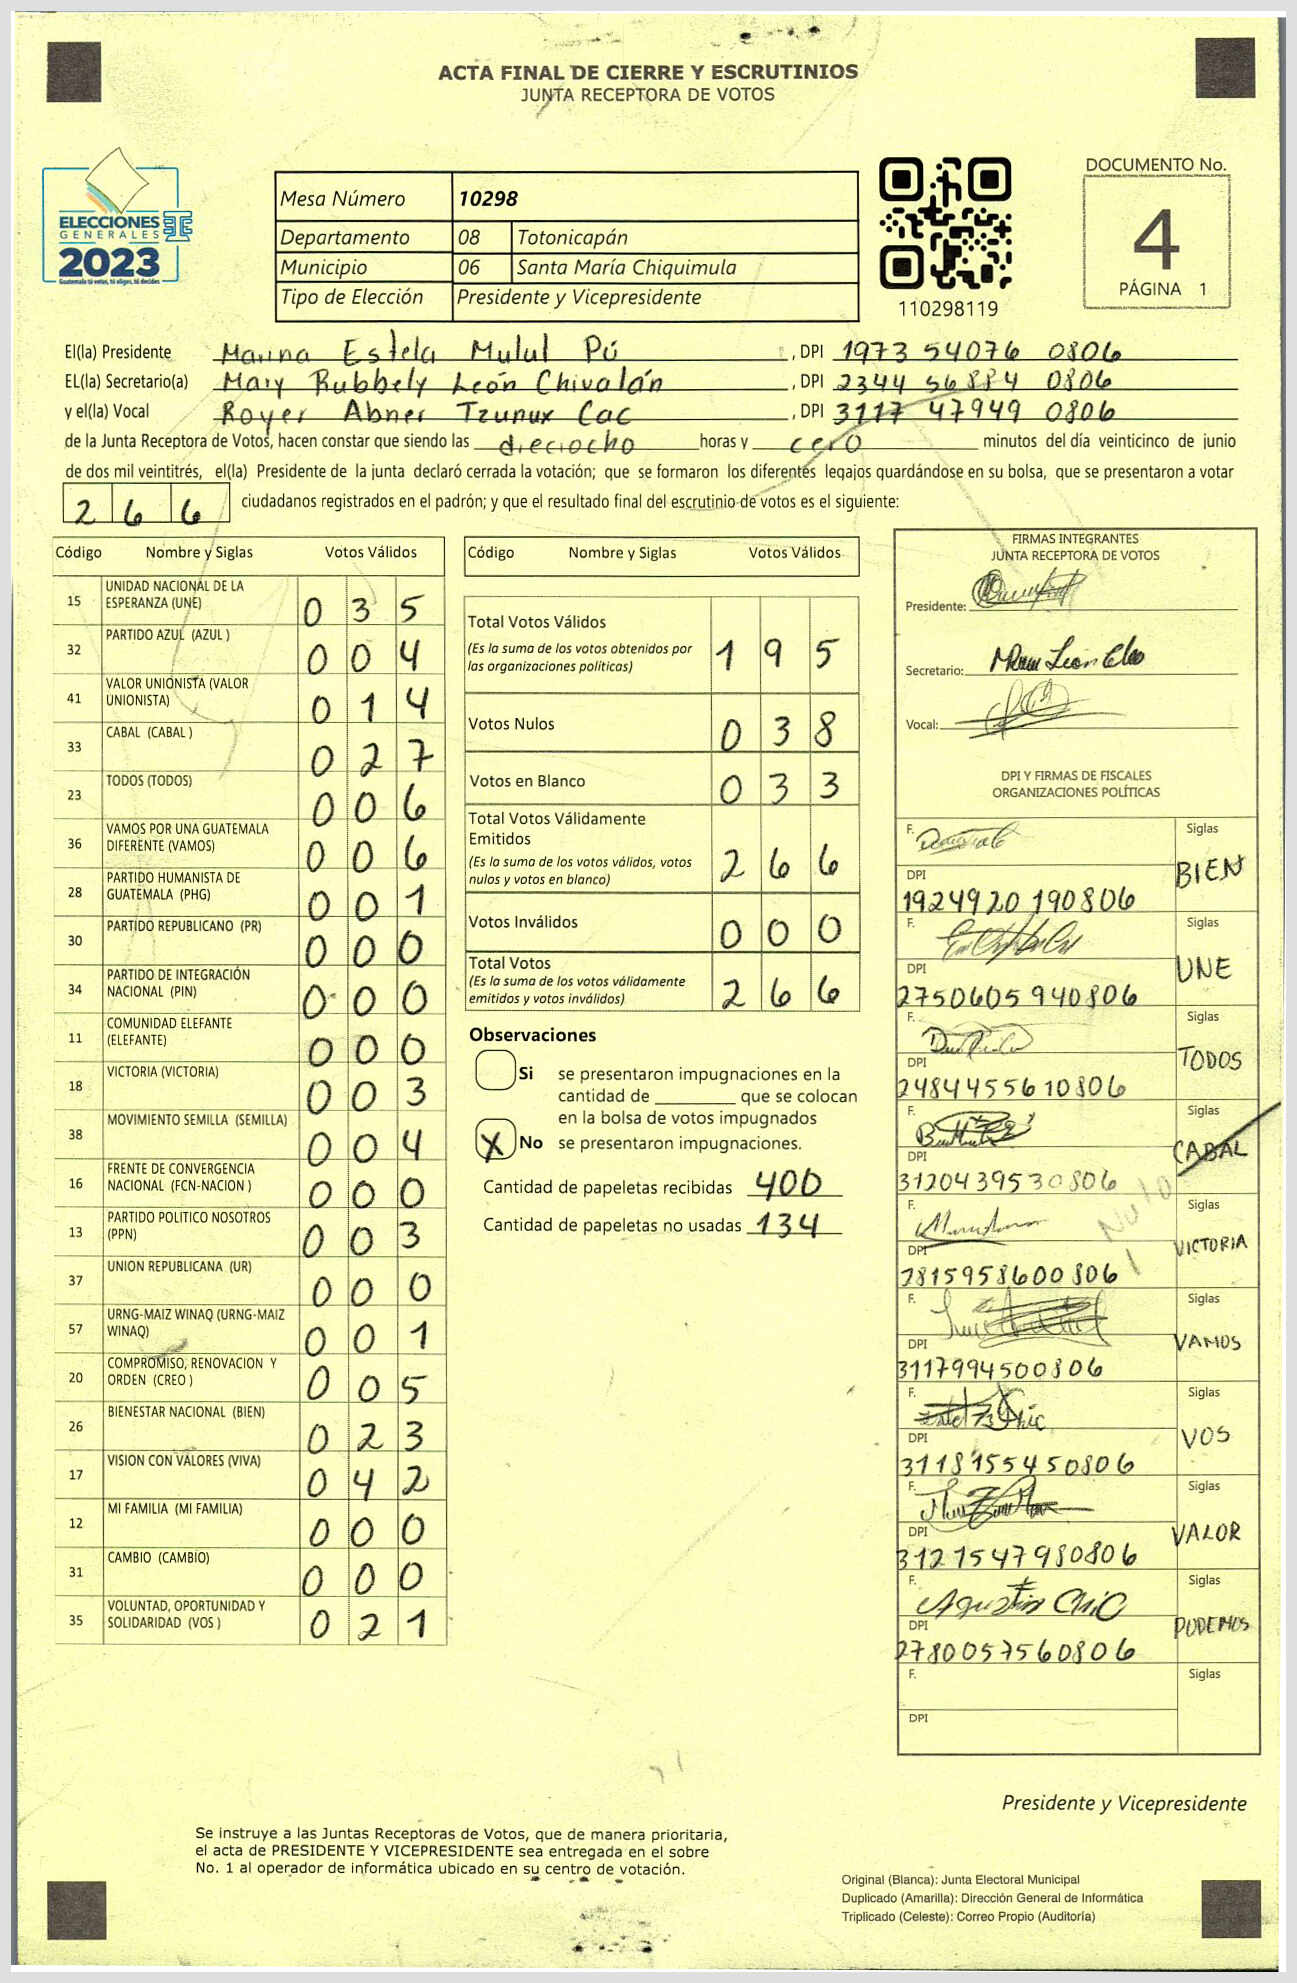 ACTA FINAL DE CIERRE Y ESCRUTINIOS
JUNTA RECEPTORA DE VOTOS
ELECCIONES
GENERALES
2023
Guatemala tú votas, tú eliges, tú decides
Mesa Número 10298
Departamento 08 Totonicapán
Municipio 06 Santa María Chiquimula
Tipo de Elección Presidente y Vicepresidente
110298119
DOCUMENTO No.
4
PÁGINA 1
El(la) Presidente Marina Estela Mulul Pú , DPI 1973 54076 0806
EL(la) Secretario(a) Mary Rubbely León Chivalán , DPI 2344 56884 0806
y el(la) Vocal Royer Abner Tzunux Cac , DPI 3117 47949 0806
de la Junta Receptora de Votos, hacen constar que siendo las dieciocho horas y cero minutos del día veinticinco de junio
de dos mil veintitrés, el(la) Presidente de la junta declaró cerrada la votación; que se formaron los diferentes legajos quardándose en su bolsa, que se presentaron a votar
266 ciudadanos registrados en el padrón; y que el resultado final del escrutinio de votos es el siguiente:
Código Nombre y Siglas Votos Válidos
15 UNIDAD NACIONAL DE LA ESPERANZA (UNE) 035
32 PARTIDO AZUL (AZUL ) 004
41 VALOR UNIONISTA (VALOR UNIONISTA) 014
33 CABAL (CABAL ) 027
23 TODOS (TODOS) 006
36 VAMOS POR UNA GUATEMALA DIFERENTE (VAMOS) 006
28 PARTIDO HUMANISTA DE GUATEMALA (PHG) 001
30 PARTIDO REPUBLICANO (PR) 000
34 PARTIDO DE INTEGRACIÓN NACIONAL (PIN) 000
11 COMUNIDAD ELEFANTE (ELEFANTE) 000
18 VICTORIA (VICTORIA) 003
38 MOVIMIENTO SEMILLA (SEMILLA) 004
16 FRENTE DE CONVERGENCIA NACIONAL (FCN-NACION ) 000
13 PARTIDO POLITICO NOSOTROS (PPN) 003
37 UNION REPUBLICANA (UR) 000
57 URNG-MAIZ WINAQ (URNG-MAIZ WINAQ) 001
20 COMPROMISO, RENOVACION Y ORDEN (CREO ) 005
26 BIENESTAR NACIONAL (BIEN) 023
17 VISION CON VALORES (VIVA) 042
12 MI FAMILIA (MI FAMILIA) 000
31 CAMBIO (CAMBIO) 000
35 VOLUNTAD, OPORTUNIDAD Y SOLIDARIDAD (VOS ) 021
Código Nombre y Siglas Votos Válidos
Total Votos Válidos 195
(Es la suma de los votos obtenidos por
las organizaciones políticas)
Votos Nulos 038
Votos en Blanco 033
Total Votos Válidamente
Emitidos 266
(Es la suma de los votos válidos, votos
nulos y votos en blanco)
Votos Inválidos 000
Total Votos 266
(Es la suma de los votos válidamente
emitidos y votos inválidos)
Observaciones
Si se presentaron impugnaciones en la
cantidad de ________ que se colocan
en la bolsa de votos impugnados
X No se presentaron impugnaciones.
Cantidad de papeletas recibidas 400
Cantidad de papeletas no usadas 134
FIRMAS INTEGRANTES
JUNTA RECEPTORA DE VOTOS
Presidente:
Secretario:
Vocal:
DPI Y FIRMAS DE FISCALES
ORGANIZACIONES POLÍTICAS
F. Siglas
DPI BIEN
1924920190806
F. Siglas
DPI UNE
2750605940806
F. Siglas
DPI TODOS
2484455610806
F. Siglas
DPI CABAL
3120439530806
Nulo
F. Siglas
DPI VICTORIA
2815958600806
F. Siglas
DPI VAMOS
3117994500806
F. Siglas
DPI VOS
3118155450806
F. Siglas
DPI VALOR
3121547980806
F. Agustin Chic Siglas
DPI PODEMOS
2780057560806
F. Siglas
DPI
Presidente y Vicepresidente
Se instruye a las Juntas Receptoras de Votos, que de manera prioritaria,
el acta de PRESIDENTE Y VICEPRESIDENTE sea entregada en el sobre
No. 1 al operador de informática ubicado en su centro de votación.
Original (Blanca): Junta Electoral Municipal
Duplicado (Amarilla): Dirección General de Informática
Triplicado (Celeste): Correo Propio (Auditoría)